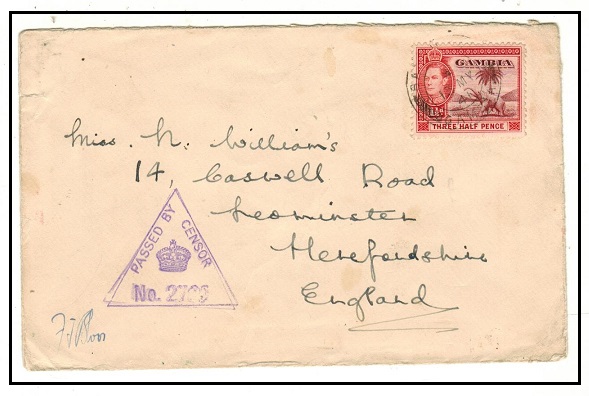 GAMBIA
THREE HALF PENCE
Miss. N. William's
14, Caswell Road
Leominster
Herefordshire
England
PASSED BY CENSOR
No.